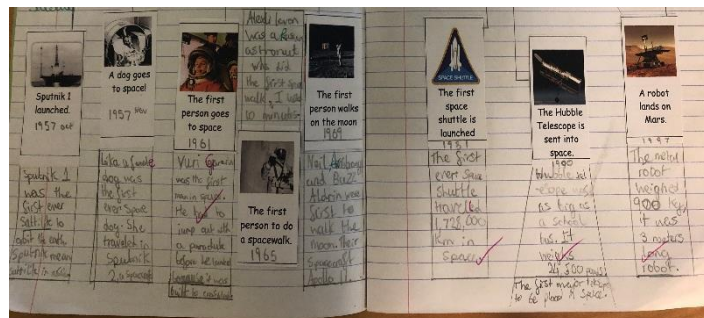 Sputnik 1
launched.
1957 oct
Sputnik 1
was the
first ever
to
orbit the earth
Sputnik mean
A dog goes
to space!
1957 Nov
Laika a female
dog was
the first
ever space
dog. She
traveled in
Sputnik
2, a spacecraft
The first
person goes
to space
1961
Yuri Gagarin
was the first
man in space.
He had to
jump out with
a parachute
before he landed
because it was
built to
was a
astronaut
who did
the first space
walk. I
10 minutes
The first
person to do
a spacewalk.
1965
The first
person walks
on the moon
1969
Neil
and Buzz
Aldrin were
first to
walk the
moon. Their
spacecraft
Apollo 11.
SPACE SHUTTLE
The first
space
shuttle is
launched
1981
The first
ever space
shuttle
traveled
1,728,000
km in
space
The Hubble
Telescope is
sent into
space.
1990
as big as
a school
bus. It
weighs
24,500
The first major
to be placed in space.
A robot
lands on
Mars.
1997
The
robot
weighed
900 kg,
it was
3 meters
long
robot.